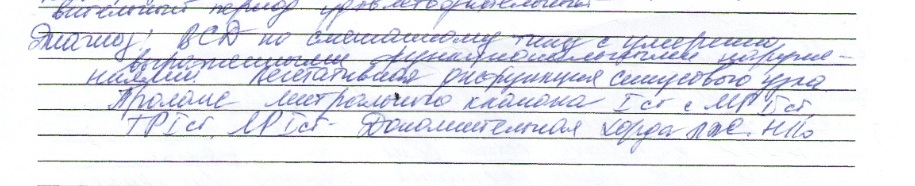 вительный период удовлетворительный
Диагноз: ВСД по смешанному типу с умеренно
выраженными функциональными наруше-
ниями. Вегетативная дисфункция синусового узла
Пролапс митрального клапана I ст с МР I ст,
ТР I ст, ЛР I ст. Дополнительная хорда ЛЖ. НКо